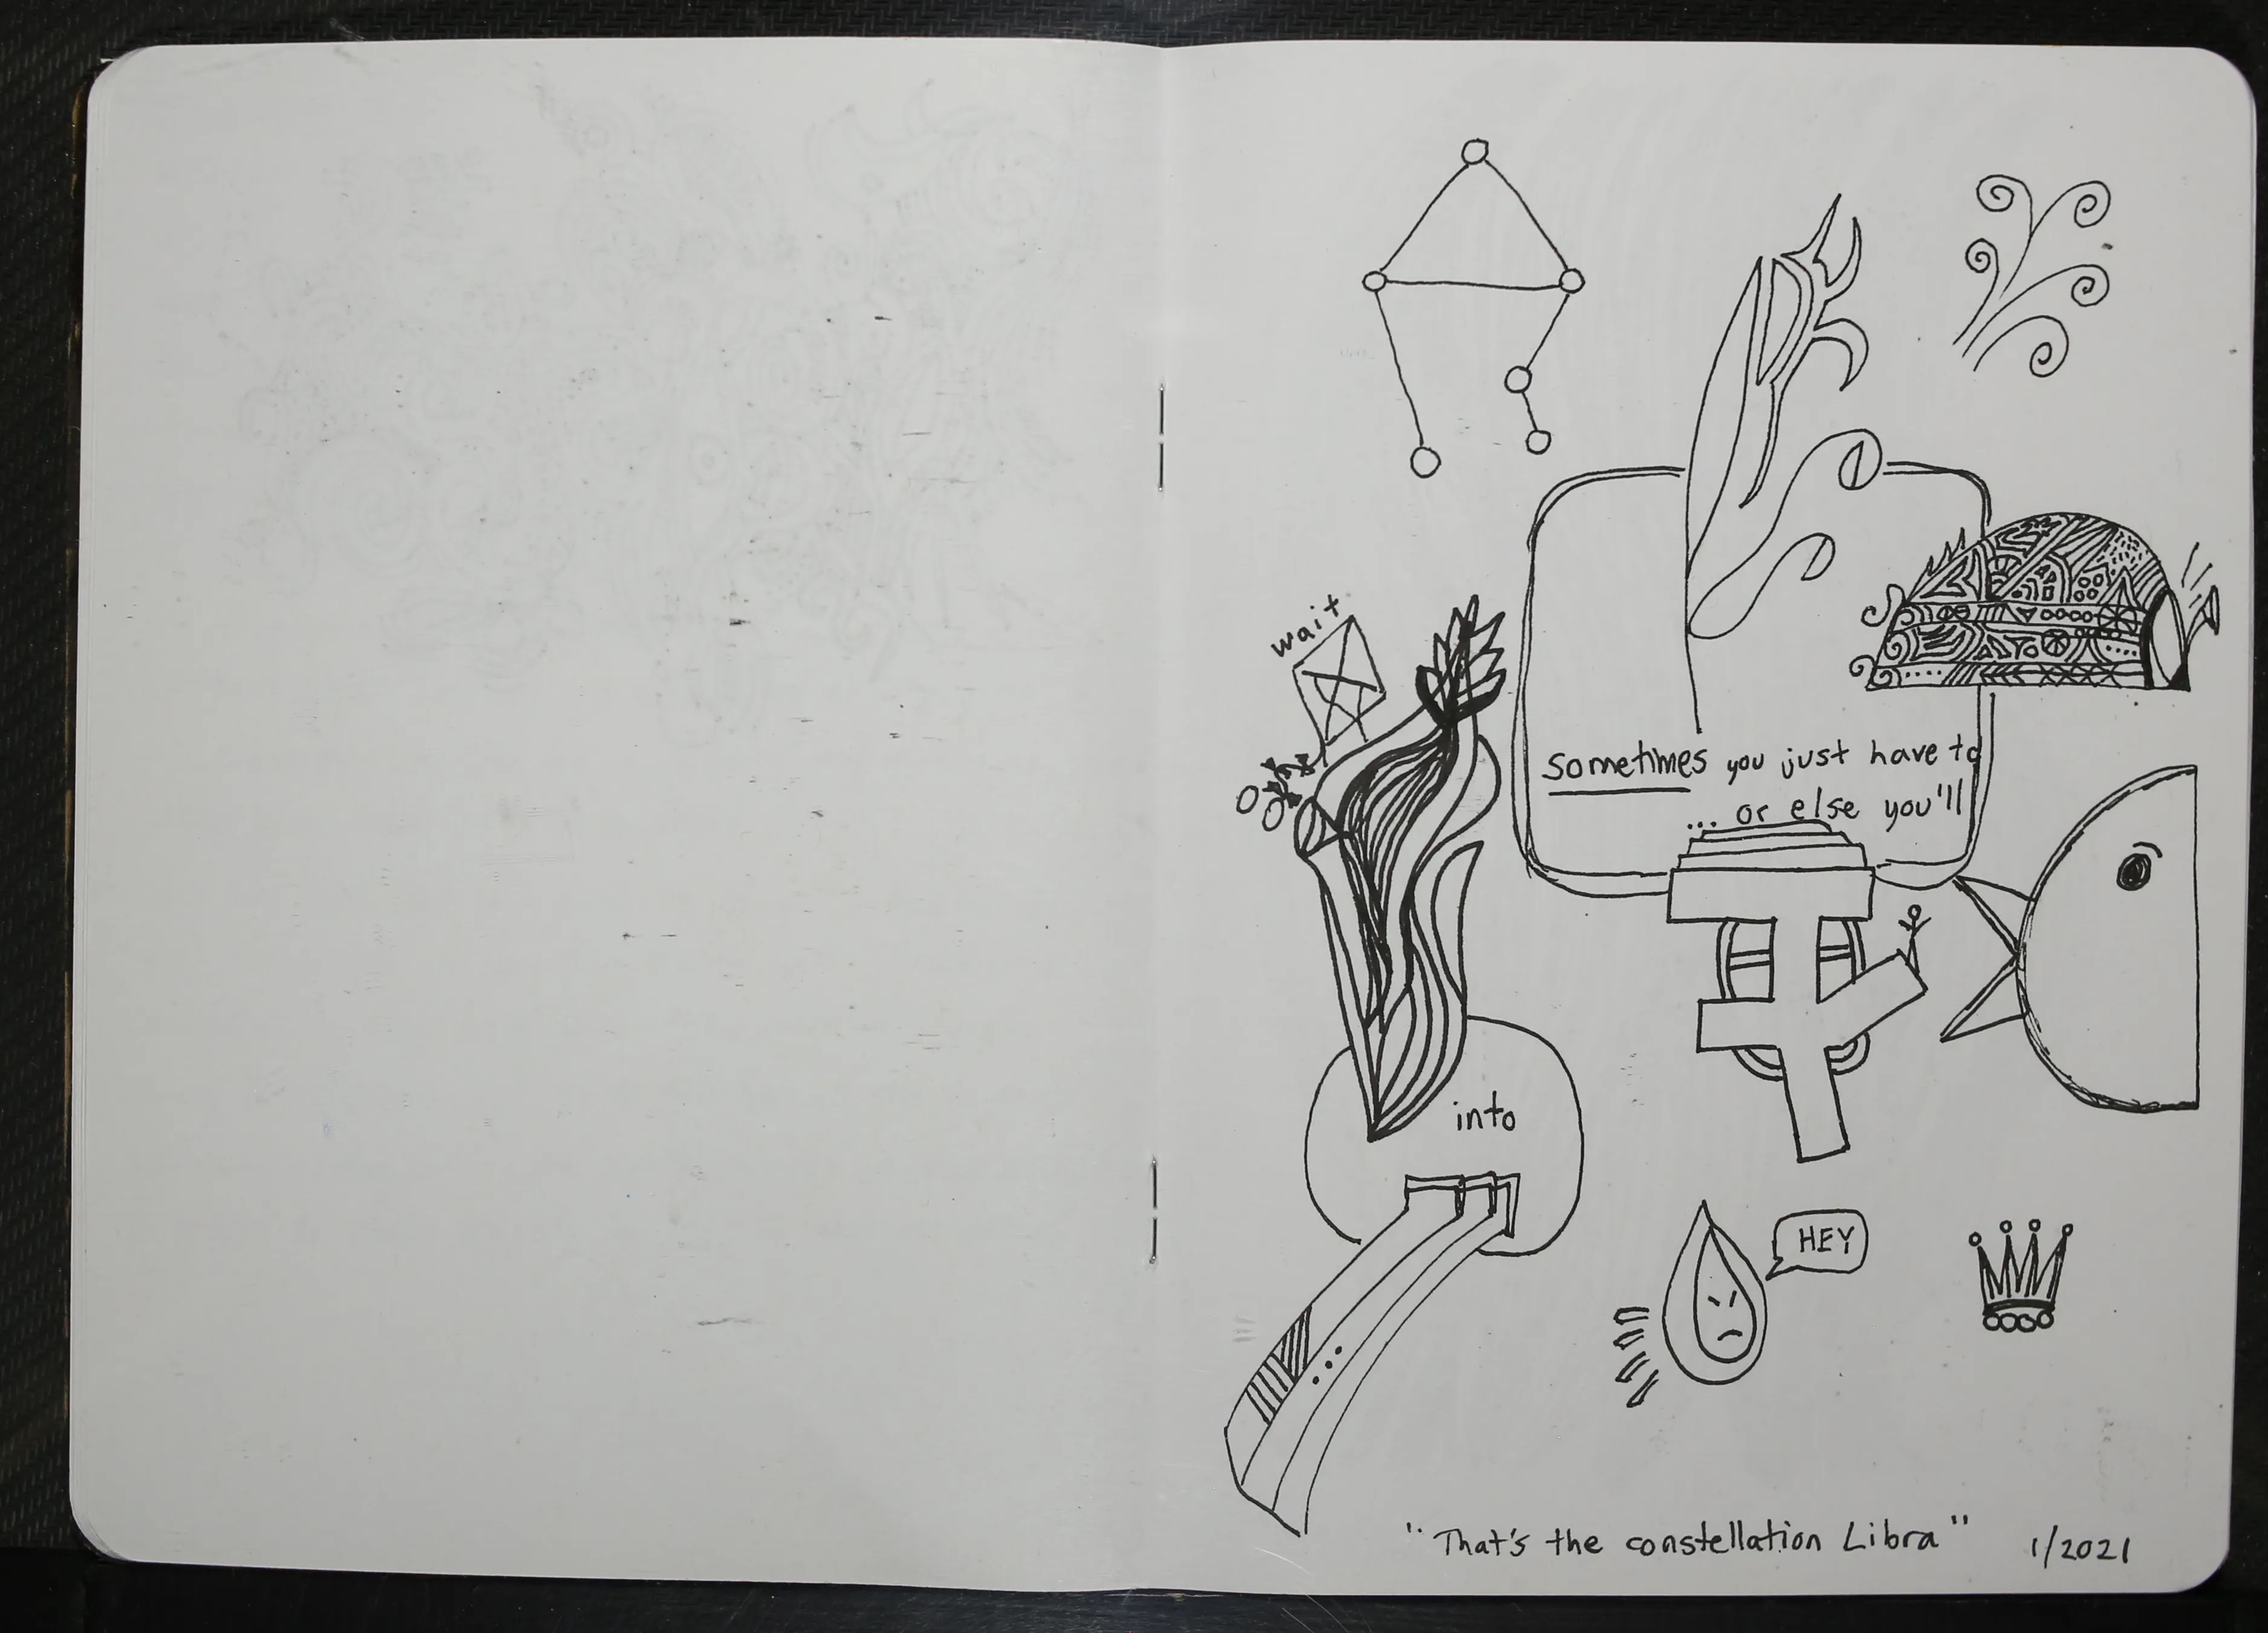 wait
sometimes you just have to
... or else you'll
into
HEY
"That's the constellation Libra" 1/2021